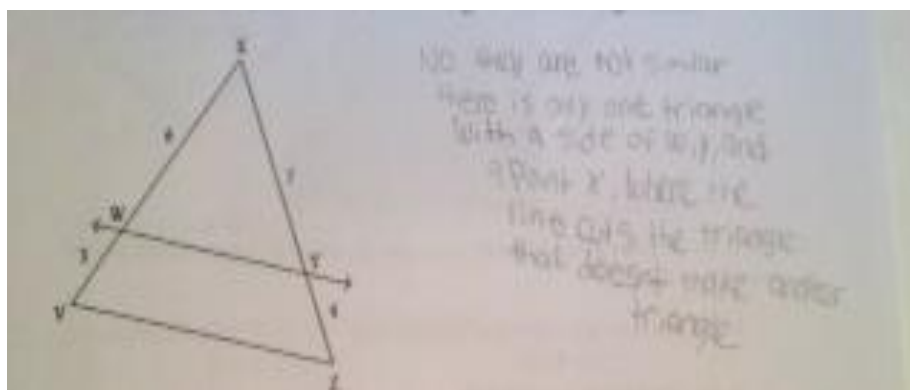 No they are not similar
there is only one triangle
with a side of w,y, and
a point x. Where the
line cuts the triangle
that doesn't make another
triangle
W
Y
V
3